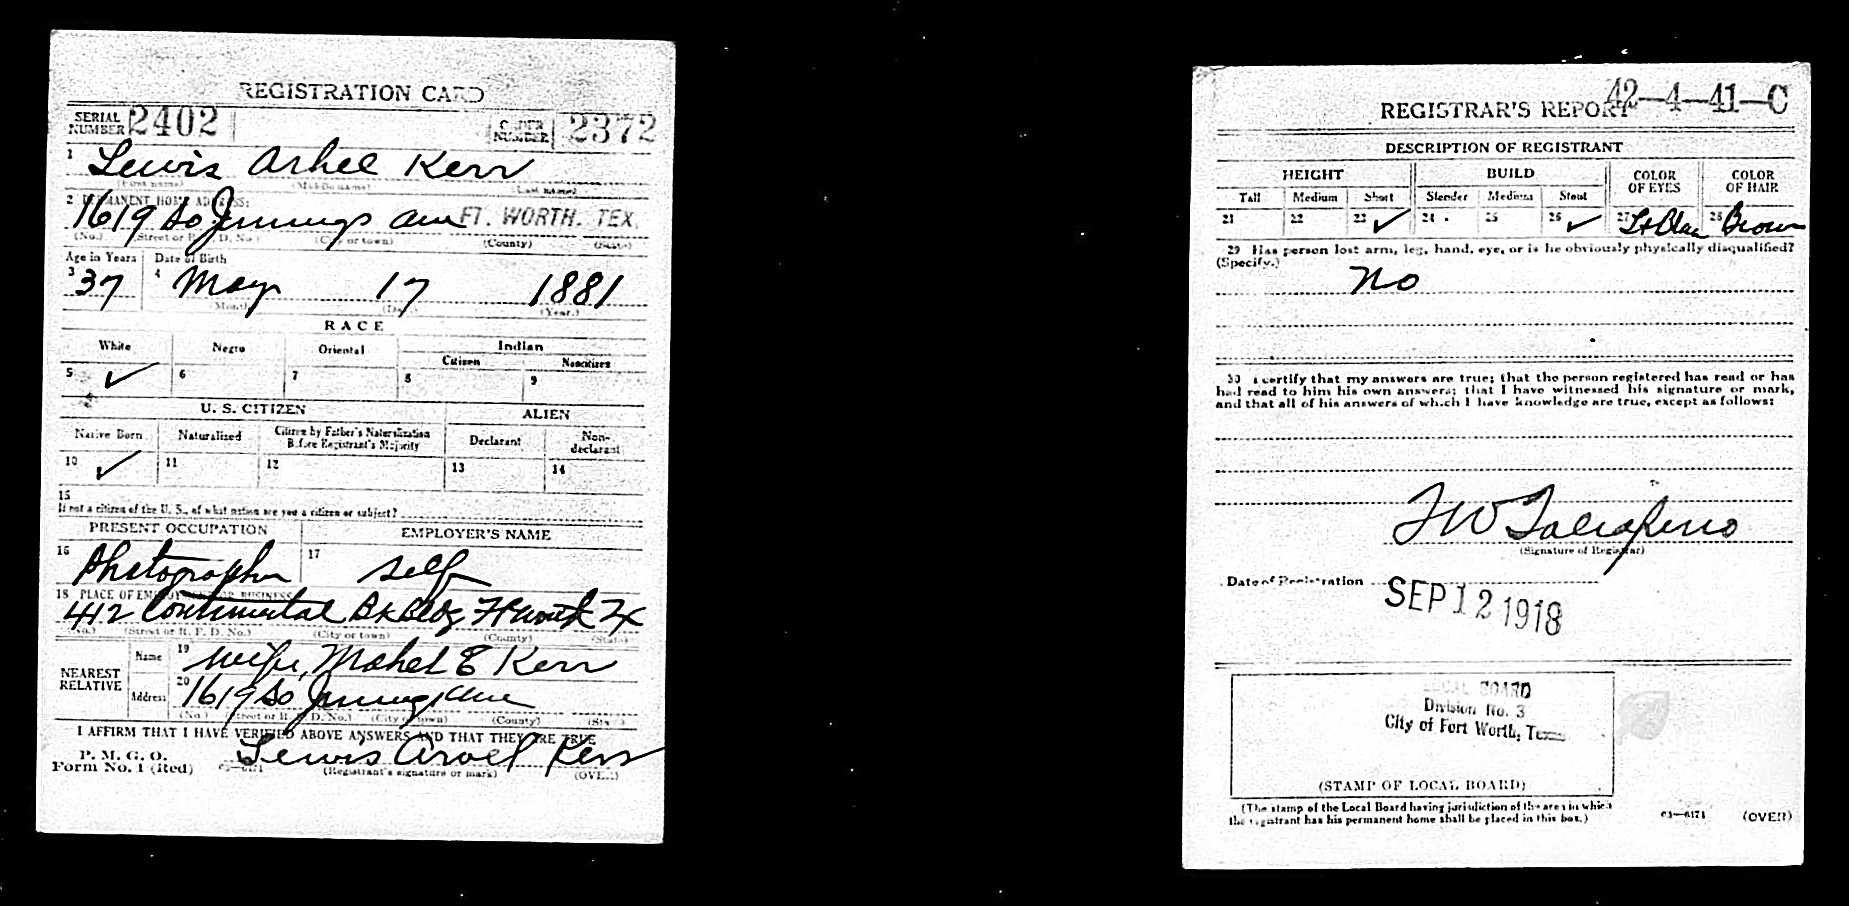 REGISTRATION CARD
SERIAL NUMBER 2402 ORDER NUMBER 2372
1 Lewis Arhel Kerr
(First name) (Middle name) (Last name)
2 PERMANENT HOME ADDRESS:
1619 So Jennings Ave FT. WORTH. TEX.
(No.) (Street or R. F. D. No.) (City or town) (County) (State)
Age in Years Date of Birth
3 37 4 May 17 1881
(Month.) (Day.) (Year.)
RACE
White Negro Oriental Indian
Citizen Noncitizen
5 ✓ 6 7 8 9
U. S. CITIZEN ALIEN
Native Born Naturalized Citizen by Father's Naturalization Before Registrant's Majority Declarant Non-declarant
10 ✓ 11 12 13 14
15
If not a citizen of the U. S., of what nation are you a citizen or subject?
PRESENT OCCUPATION EMPLOYER'S NAME
16 Photographer 17 Self
18 PLACE OF EMPLOYMENT OR BUSINESS:
412 Continental Bk Bldg Ft Worth Tx
(No.) (Street or R. F. D. No.) (City or town) (County) (State)
NEAREST RELATIVE Name 19 Wife, Mabel E Kerr
Address 20 1619 So Jennings Ave
(No.) (Street or R. F. D. No.) (City or town) (County) (State)
I AFFIRM THAT I HAVE VERIFIED ABOVE ANSWERS AND THAT THEY ARE TRUE
P. M. G. O.
Form No. 1 (Red) 03—6171 Lewis Arvel Kerr
(Registrant's signature or mark) (OVER)
42—4—41—C
REGISTRAR'S REPORT
DESCRIPTION OF REGISTRANT
HEIGHT BUILD COLOR OF EYES COLOR OF HAIR
Tall Medium Short Slender Medium Stout
21 22 23 ✓ 24 25 26 ✓ 27 Lt Blue 28 Brown
29 Has person lost arm, leg, hand, eye, or is he obviously physically disqualified?
(Specify.)
No
30 I certify that my answers are true; that the person registered has read or has
had read to him his own answers; that I have witnessed his signature or mark,
and that all of his answers of which I have knowledge are true, except as follows:
(Signature of Registrar)
Date of Registration SEP 12 1918
LOCAL BOARD
Division No. 3
City of Fort Worth, Texas
(STAMP OF LOCAL BOARD)
(The stamp of the Local Board having jurisdiction of the area in which
the registrant has his permanent home shall be placed in this box.)
03—6171 (OVER)